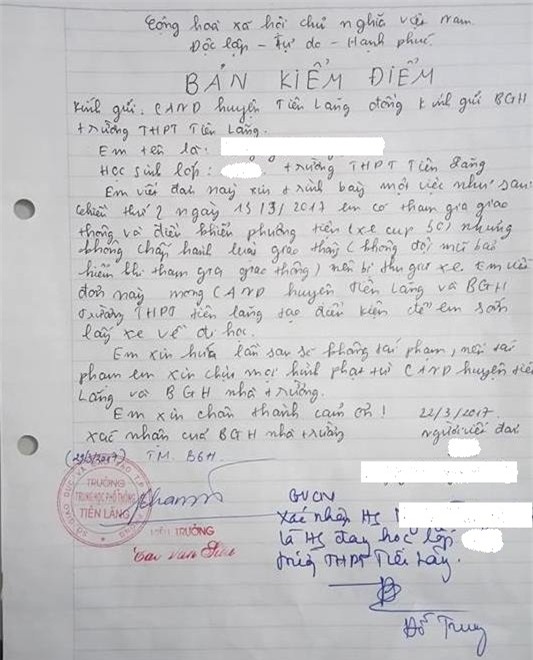 Cộng hoà xã hội chủ nghĩa việt Nam.
Độc lập - Tự do - Hạnh phúc.
BẢN KIỂM ĐIỂM
Kính gửi: CAND huyện Tiên Lãng đồng kính gửi BGH
trường THPT Tiên Lãng.
Em tên là:
Học sinh lớp: trường THPT Tiên Lãng
Em viết đơn này xin trình bày một việc như sau:
chiều thứ 2 ngày 13/3/2017 em có tham gia giao
thông và điều khiển phương tiện (xe cup 50) nhưng
không chấp hành luật giao thông (không đội mũ bảo
hiểm khi tham gia giao thông) nên bị thu giữ xe. Em viết
đơn này mong CAND huyện Tiên Lãng và BGH
trường THPT Tiên Lãng tạo điều kiện để em sớm
lấy xe về đi học.
Em xin hứa lần sau sẽ không tái phạm, nếu tái
phạm em xin chịu mọi hình phạt từ CAND huyện Tiên
Lãng và BGH nhà trường.
Em xin chân thành cảm ơn! 22/3/2017.
xác nhận của BGH nhà trường người viết đơn
(22/3/2017) T.M. BGH
TRƯỜNG
TRUNG HỌC PHỔ THÔNG
TIÊN LÃNG
HIỆU TRƯỞNG
GVCN
Xác nhận HS
là HS đang học lớp
trường THPT Tiên Lãng.
Đỗ Trung